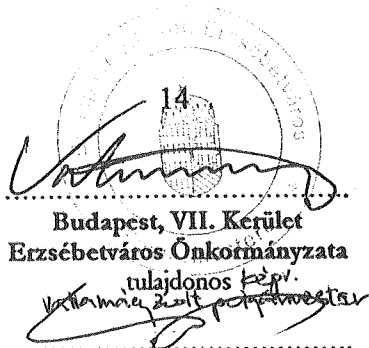 Erzsébetváros
14.
Budapest, VII. Kerület
Erzsébetváros Önkormányzata
tulajdonos képv.
Vattamány Zsolt polgármester